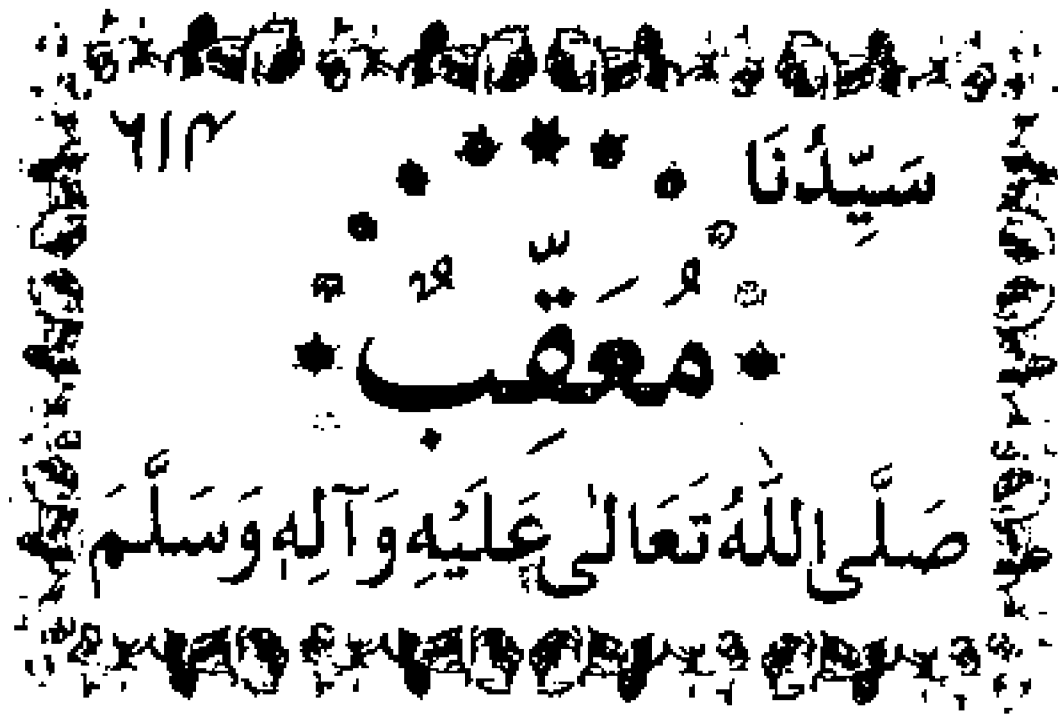 سَيِّدُنَا ٦١٣
مُعَقِّبٌ
صَلَّى اللّٰهُ تَعَالٰى عَلَيْهِ وَآلِهٖ وَسَلَّمَ